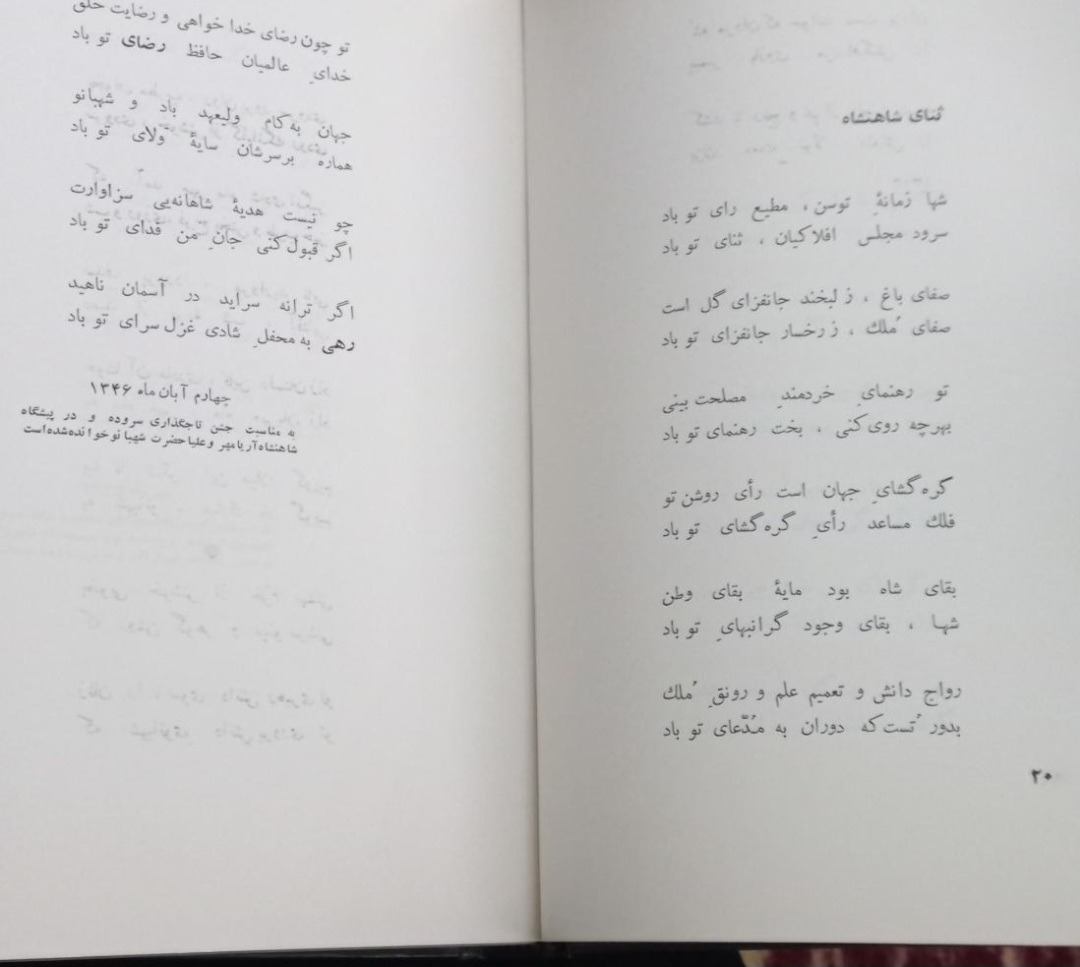 ثنای شاهنشاه
شها زمانهٔ توسن، مطیع رای تو باد
سرود مجلس افلاکیان، ثنای تو باد
صفای باغ، ز لبخند جانفزای گل است
صفای مُلك، ز رخسار جانفزای تو باد
تو رهنمایِ خردمندِ مصلحت بینی
بهرچه روی کنی، بخت رهنمای تو باد
گره گشایِ جهان است رأی روشن تو
فلك مساعد رأیِ گره گشای تو باد
بقای شاه بود مایهٔ بقای وطن
شها، بقای وجود گرانبهایِ تو باد
رواج دانش و تعمیم علم و رونقِ مُلك
بدور تُست که دوران به مُدّعای تو باد
۲۰
تو چون رضای خدا خواهی و رضایت خلق
خدایِ عالمیان حافظ رضای تو باد
جهان به کام ولیعهد باد و شهبانو
هماره برسرشان سایهٔ وَلای تو باد
چو نیست هدیهٔ شاهانه‌یی سزاوارت
اگر قبول کنی جانِ من فدای تو باد
اگر ترانه سراید در آسمان ناهید
رهی به محفلِ شادی غزل سرای تو باد
چهارم آبان ماه ۱۳۴۶
به مناسبت جشن تاجگذاری سروده و در پیشگاه
شاهنشاه آریامهر و علیاحضرت شهبانو خوانده شده است